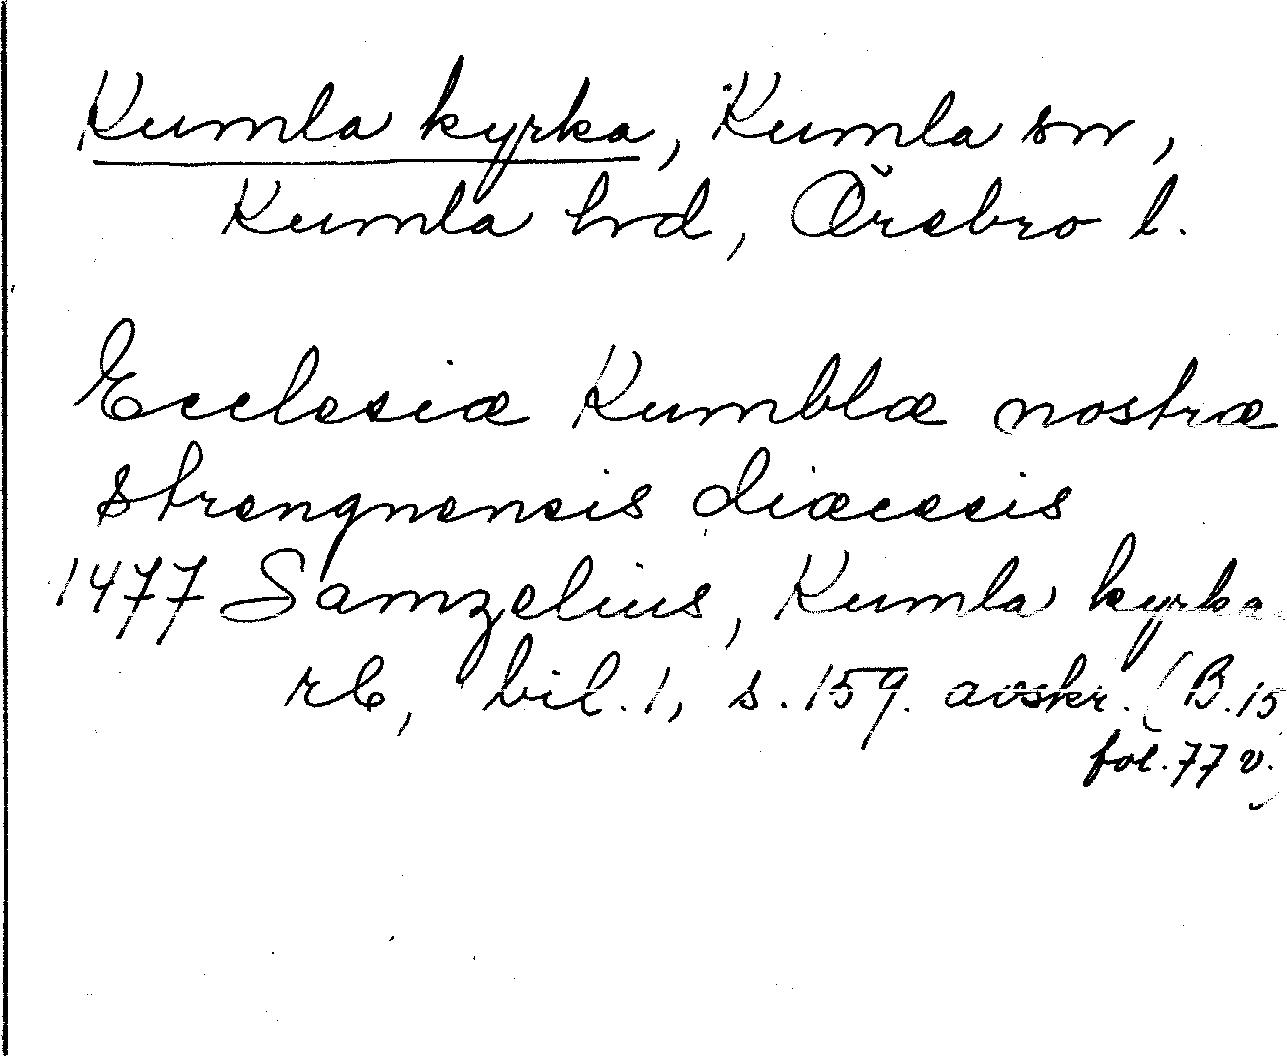 Kumla kyrka, Kumla sn,
Kumla hd, Örebro l.
Ecclesiæ Kumblæ nostræ
strengnensis diæcesis
1477 Samzelius, Kumla kyrkas
rb, bil. 1, s. 159. avskr. (B. 15
fol. 77 v.)